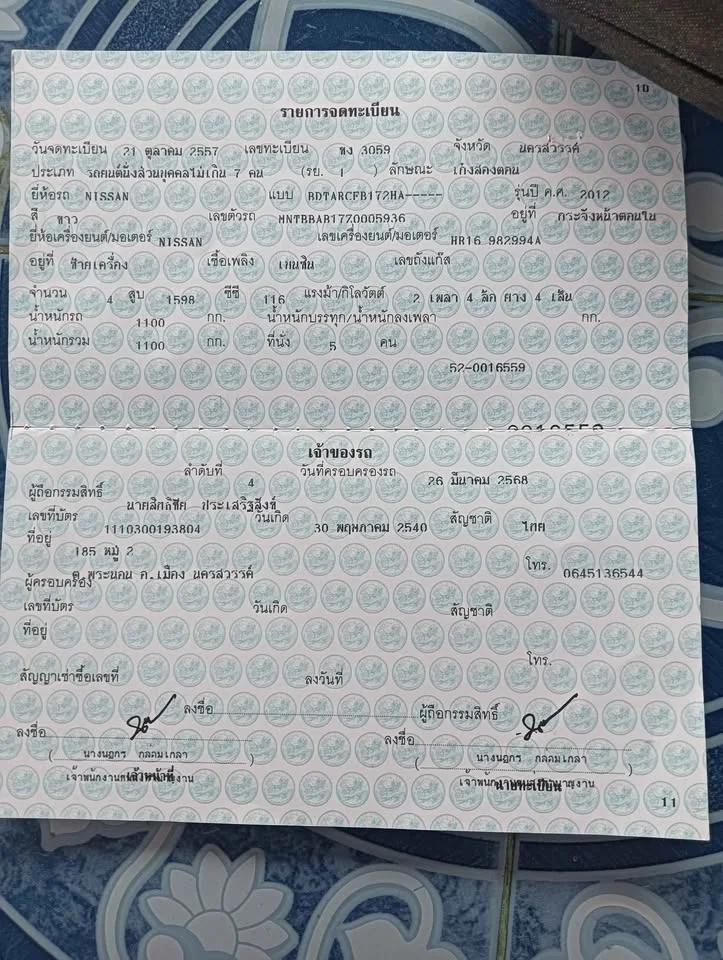 10
รายการจดทะเบียน
วันจดทะเบียน 21 ตุลาคม 2557 เลขทะเบียน 3059 จังหวัด นครสวรรค์
ประเภท รถยนต์นั่งส่วนบุคคลไม่เกิน 7 คน (รย. 1 ) ลักษณะ เก๋งสองตอน
ยี่ห้อรถ NISSAN แบบ BDTARCFB172HA----- รุ่นปี ค.ศ. 2012
สี ขาว เลขตัวรถ MNTBBAB17Z0005936 อยู่ที่ กระจังหน้าตอนใน
ยี่ห้อเครื่องยนต์/มอเตอร์ NISSAN เลขเครื่องยนต์/มอเตอร์ HR16 982994A
อยู่ที่ ซ้ายเครื่อง เชื้อเพลิง เบนซิน เลขถังแก๊ส
จำนวน 4 สูบ 1598 ซีซี 116 แรงม้า/กิโลวัตต์ 2 เพลา 4 ล้อ ยาง 4 เส้น
น้ำหนักรถ 1100 กก. น้ำหนักบรรทุก/น้ำหนักลงเพลา กก.
น้ำหนักรวม 1100 กก. ที่นั่ง 5 คน
52-0016559
เจ้าของรถ
ลำดับที่ 4 วันที่ครอบครองรถ 26 มีนาคม 2568
ผู้ถือกรรมสิทธิ์ นายสิทธิชัย ประเสริฐสังข์
เลขที่บัตร 1110300193804 วันเกิด 30 พฤษภาคม 2540 สัญชาติ ไทย
ที่อยู่ 185 หมู่ 2
ต.พระนอน อ.เมือง นครสวรรค์ โทร. 0645136544
ผู้ครอบครอง
เลขที่บัตร วันเกิด สัญชาติ
ที่อยู่
โทร.
สัญญาเช่าซื้อเลขที่ ลงวันที่
ลงชื่อ ผู้ถือกรรมสิทธิ์
ลงชื่อ ลงชื่อ
( นางนฎกร กล่อมเกลา ) ( นางนฎกร กล่อมเกลา )
เจ้าหน้าที่ นายทะเบียน
11